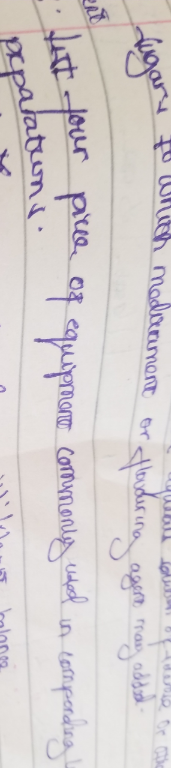 aqueous solution of sucrose or other
sugars to which medicament or flavouring agent may added.
list four piece of equipment commonly used in compounding
preparations.
balance